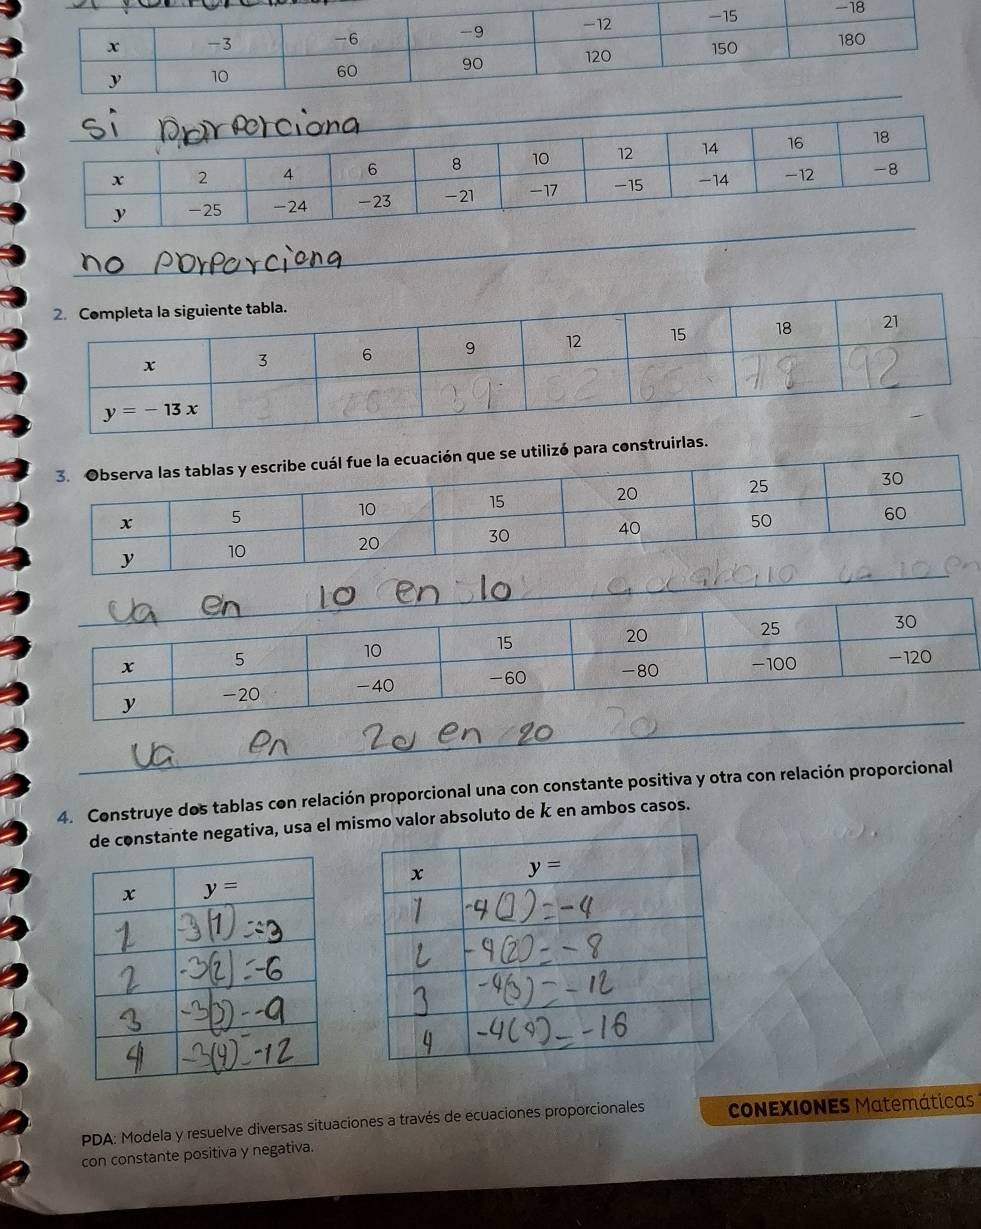 x -3 -6 -9 -12 -15 -18
y 10 60 90 120 150 180
si porporciona
x 2 4 6 8 10 12 14 16 18
y -25 -24 -23 -21 -17 -15 -14 -12 -8
no porporciona
2. Completa la siguiente tabla.
x 3 6 9 12 15 18 21
y = - 13 x 3 26 39 52 65 78 92
3. Observa las tablas y escribe cuál fue la ecuación que se utilizó para construirlas.
x 5 10 15 20 25 30
y 10 20 30 40 50 60
va en 10 en 10
x 5 10 15 20 25 30
y -20 -40 -60 -80 -100 -120
va en 20 en 20 20
4. Construye dos tablas con relación proporcional una con constante positiva y otra con relación proporcional
de constante negativa, usa el mismo valor absoluto de k en ambos casos.
x y =
1 -3(1) =-3
2 -3(2) =-6
3 -3(3) --9
4 -3(4) -12
x y =
1 -4(1) = -4
2 -4(2) = -8
3 -4(3) = -12
4 -4(4) = -16
PDA: Modela y resuelve diversas situaciones a través de ecuaciones proporcionales
con constante positiva y negativa.
CONEXIONES Matemáticas